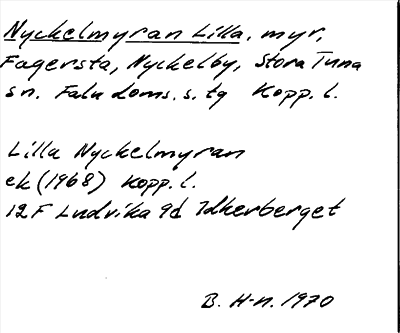 Nyckelmyran Lilla, myr,
Fagersta, Nyckelby, Stora Tuna
sn. Falu Doms. s. tg Kopp. l.
Lilla Nyckelmyran
ek (1968) Kopp. l.
12 F Ludvika 9d Idkerberget
B. H-n. 1970